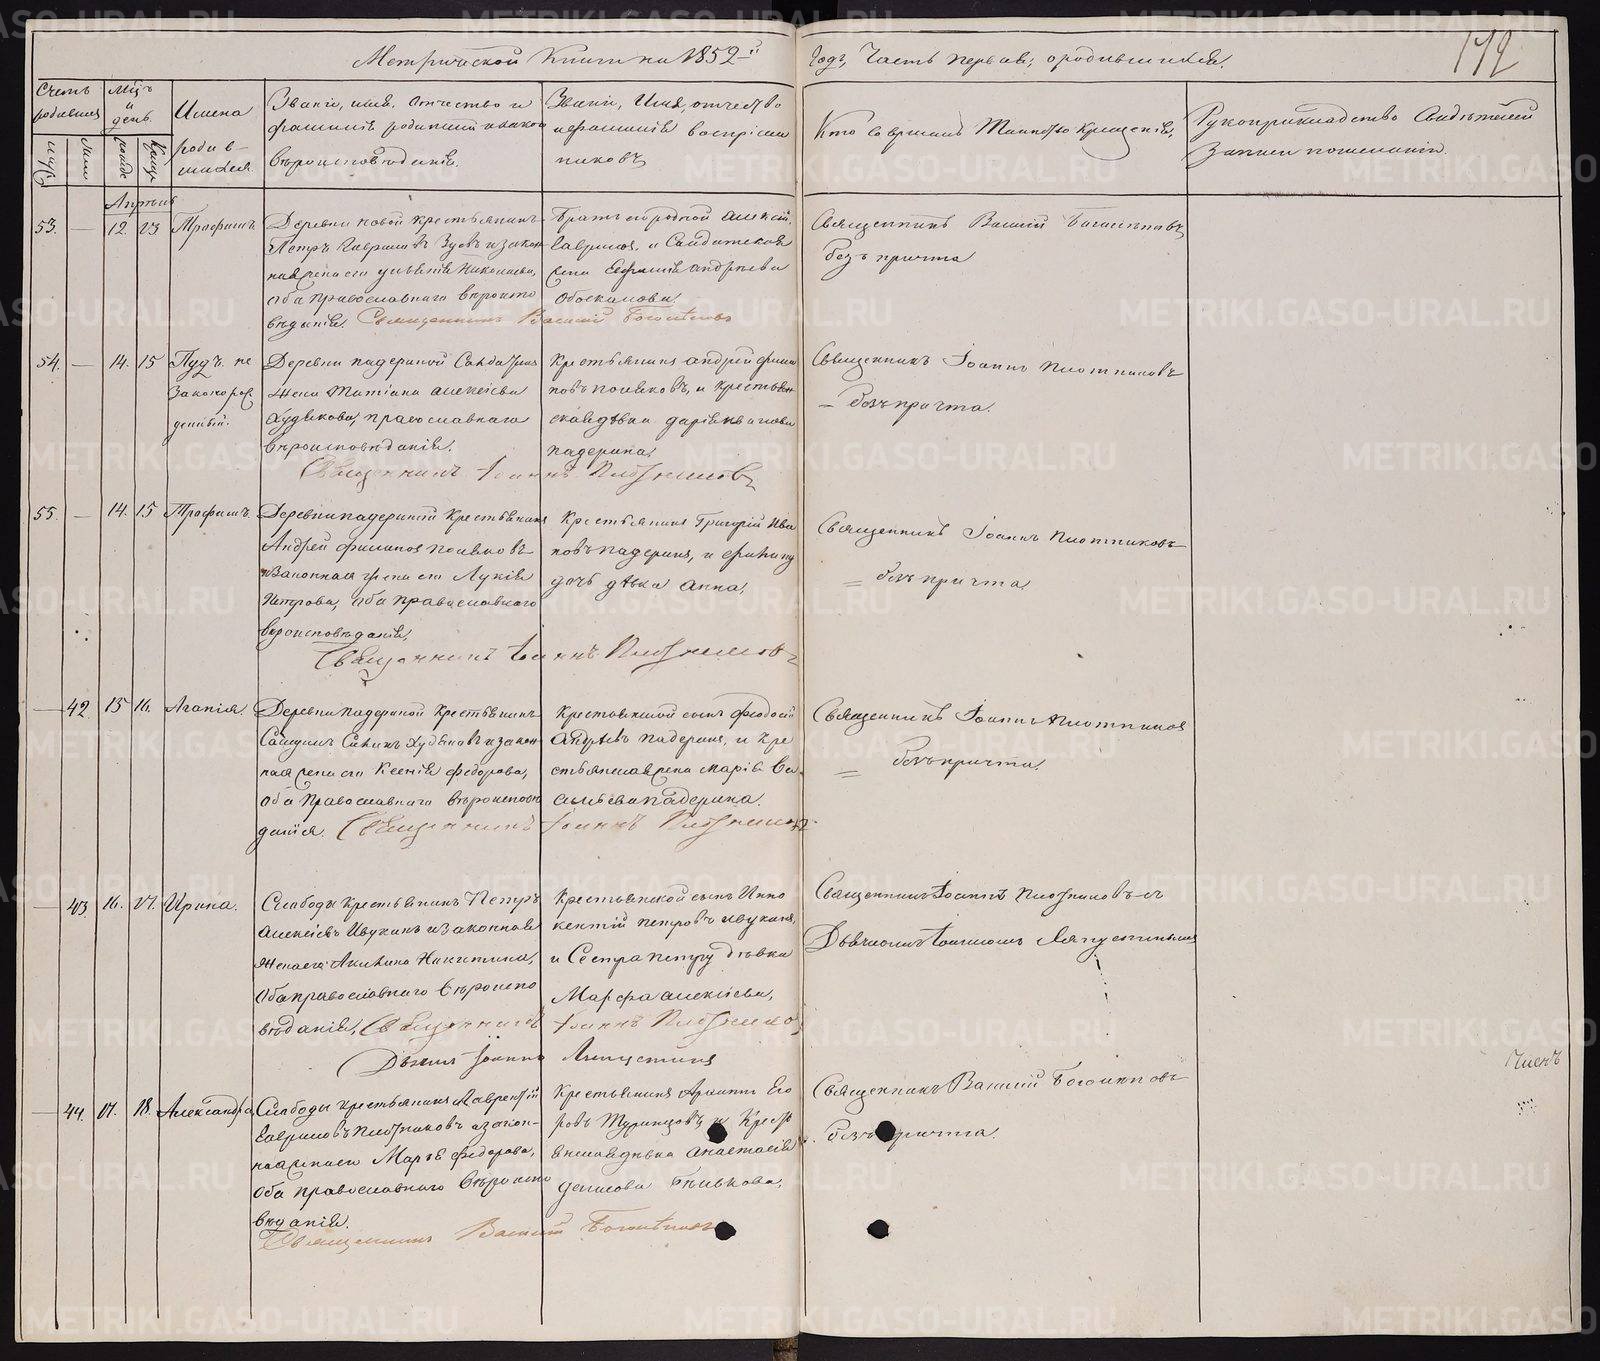 Метрической Книги на 1852-й
Годъ, Часть первая, о родившихся.
172
Счетъ родившихся
Мѣцъ и день.
Имена родившихся
Званіе, имя, отчество и фамилія родителей и какого вѣроисповѣданія.
Званіе, Имя, отчество и фамилія воспріемниковъ
Кто совершалъ Таинство Крещенія.
Рукоприкладство Свидѣтелей Записи по желанію.
Апрѣль
53. — 12. 23 Трофимъ
Деревни Новой крестьянинъ
Петръ Гавриловъ Зуевъ и закон-
ная жена его Николаева,
оба православнаго вѣроиспо
вѣданія. Священникъ Василій
Братъ его родной Алексѣй
Гавриловъ, и Солдатская
жена Андреева
Священникъ Василій
безъ причта
54. — 14. 15 Пудъ. не
законорож
денный.
Деревни Падериной Солдатская
Жена Татіана Алексѣева
Худякова, православнаго
вѣроисповѣданія.
Крестьянинъ Андрей Филип
повъ Поляковъ, и крестьян
ская дѣвка Дарія
Падерина.
Священникъ Іоаннъ Плотниковъ
Священникъ Іоаннъ Плотниковъ
— безъ причта.
55. — 14. 15 Трофимъ.
Деревни Падериной Крестьянинъ
Андрей Филипов Поляковъ
и Законная жена его Лукія
Петрова, оба Православнаго
вѣроисповѣданія,
Крестьянинъ Григорій Ива
новъ Падеринъ, и
дочь дѣвка Анна,
Священникъ Іоаннъ Плотниковъ
Священникъ Іоаннъ Плотниковъ
= безъ причта
— 42 15 16. Агапія.
Деревни Падериной Крестьянинъ
Худяковъ и закон-
ная жена его Ксенія Федорова,
оба Православнаго вѣроисповѣ
данія. Священникъ Іоаннъ Плотниковъ
Крестьянской сынъ Феодосій
Андреевъ Падеринъ, и кре
стьянская жена Марія Ва
сильева Падерина.
Священникъ Іоаннъ Плотниковъ
= безъ причта.
— 43 16. 17. Ирина.
Слободы крестьянинъ Петръ
Алексѣевъ Ивукинъ и Законная
Жена его Акилина Никитина,
Оба православнаго вѣроиспо
вѣданія, Священникъ Іоаннъ Плотниковъ
Дьячекъ Іоаннъ Ляпустинъ
Крестьянской сынъ Инно
кентій Петровъ Ивукинъ,
и Сестра Петру дѣвка
Марфа Алексѣева,
Священникъ Іоаннъ Плотниковъ съ
Дьячкомъ Іоанномъ Ляпустинымъ
— 44. 17. 18. Александра
Слободы крестьянинъ Лаврентій
Гавриловъ Плотниковъ и закон-
ная жена его Марья Федорова,
оба православнаго вѣроиспо
вѣданія.
Священникъ Василій
Крестьянинъ Архиппъ Его
ровъ и Крест
ьянская дѣвка Анастасія
Денисова Бѣлькова,
Священникъ Василій
безъ причта.
METRIKI.GASO-URAL.RU